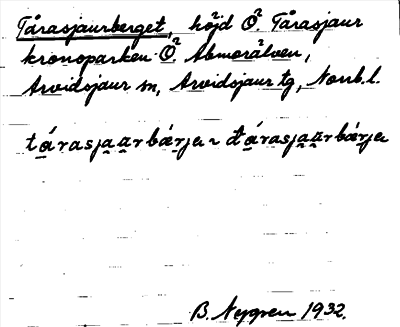 Tårasjaurberget, höjd Ö. Tårasjaur
kronoparken Ö. Abmorälven,
Arvidsjaur sn, Arvidsjaur tg, Norrb. l.
tárasja̯a̯rbærje ~ đárasja̯a̯rbærje
B. Nygren 1932.